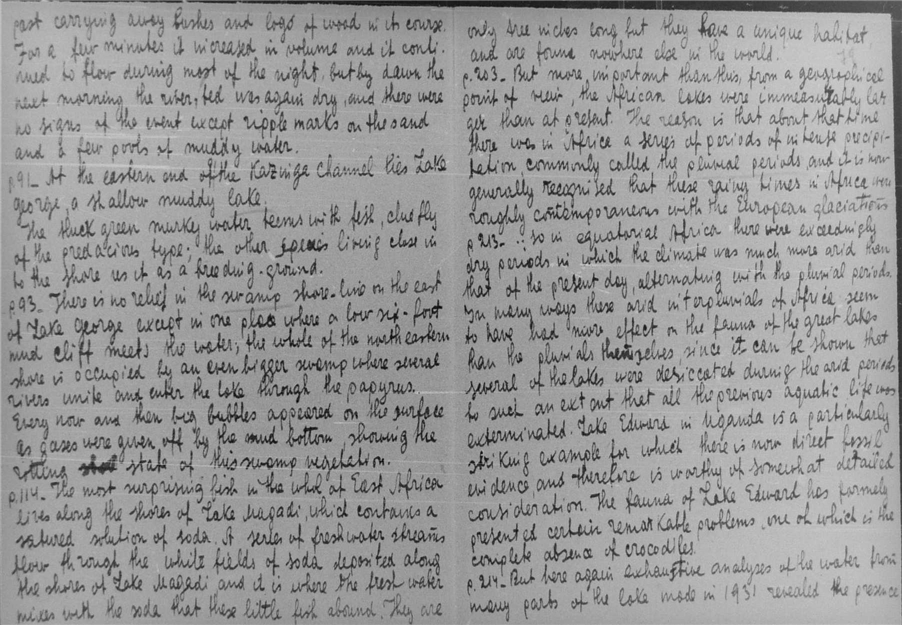 past carrying away bushes and logs of wood in its course.
For a few minutes it increased in volume and it conti-
nued to flow during most of the night, but by dawn the
next morning the river-bed was again dry, and there were
no signs of the event except ripple marks on the sand
and a few pools of muddy water.
p.91_ At the eastern end of the Kazinga Channel lies Lake
George, a shallow muddy lake.
The thick green murky water teems with fish, chiefly
of the predacious type; the other species living close in
to the shore use it as a breeding-ground.
p.93_ There is no relief in the swamp shore-line on the east
of Lake George except in one place where a low six-foot
mud cliff meets the water; the whole of the north eastern
shore is occupied by an even bigger swamp where several
rivers unite and enter the lake through the papyrus.
Every now and then big bubbles appeared on the surface
as gases were given off by the mud bottom, showing the
rotting state of this swamp vegetation.
p.114_ The most surprising fish in the whole of East Africa
lives along the shores of Lake Magadi, which contains a
satured solution of soda. A series of freshwater streams
flow through the white fields of soda deposited along
the shores of Lake Magadi and it is where the fresh water
mixes with the soda that these little fish abound. They are
only three inches long but they have a unique habitat
and are found nowhere else in the world.
p.203_ But more important than this, from a geographical
point of view, the African lakes were immeasurably lar-
ger than at present. The reason is that about that time
there was in Africa a series of periods of intense precipi-
tation, commonly called the pluvial periods, and it is now
generally recognised that these rainy times in Africa were
roughly contemporaneous with the European glaciations
p.213_ .. so in equatorial Africa there were exceedingly
dry periods in which the climate was much more arid than
that of the present day, alternating with the pluvial periods.
In many ways these arid interpluvials of Africa seem
to have had more effect on the fauna of the great lakes
than the pluvials themselves, since it can be shown that
several of the lakes were desiccated during the arid periods
to such an extent that all the previous aquatic life was
exterminated. Lake Edward in Uganda is a particularly
striking example for which there is now direct fossil
evidence, and therefore is worthy of somewhat detailed
consideration. The fauna of Lake Edward has formely
presented certain remarkable problems, one of which is the
complete absence of crocodiles.
p.214_ But here again exhaustive analyses of the water from
many parts of the lake made in 1931 revealed the presence